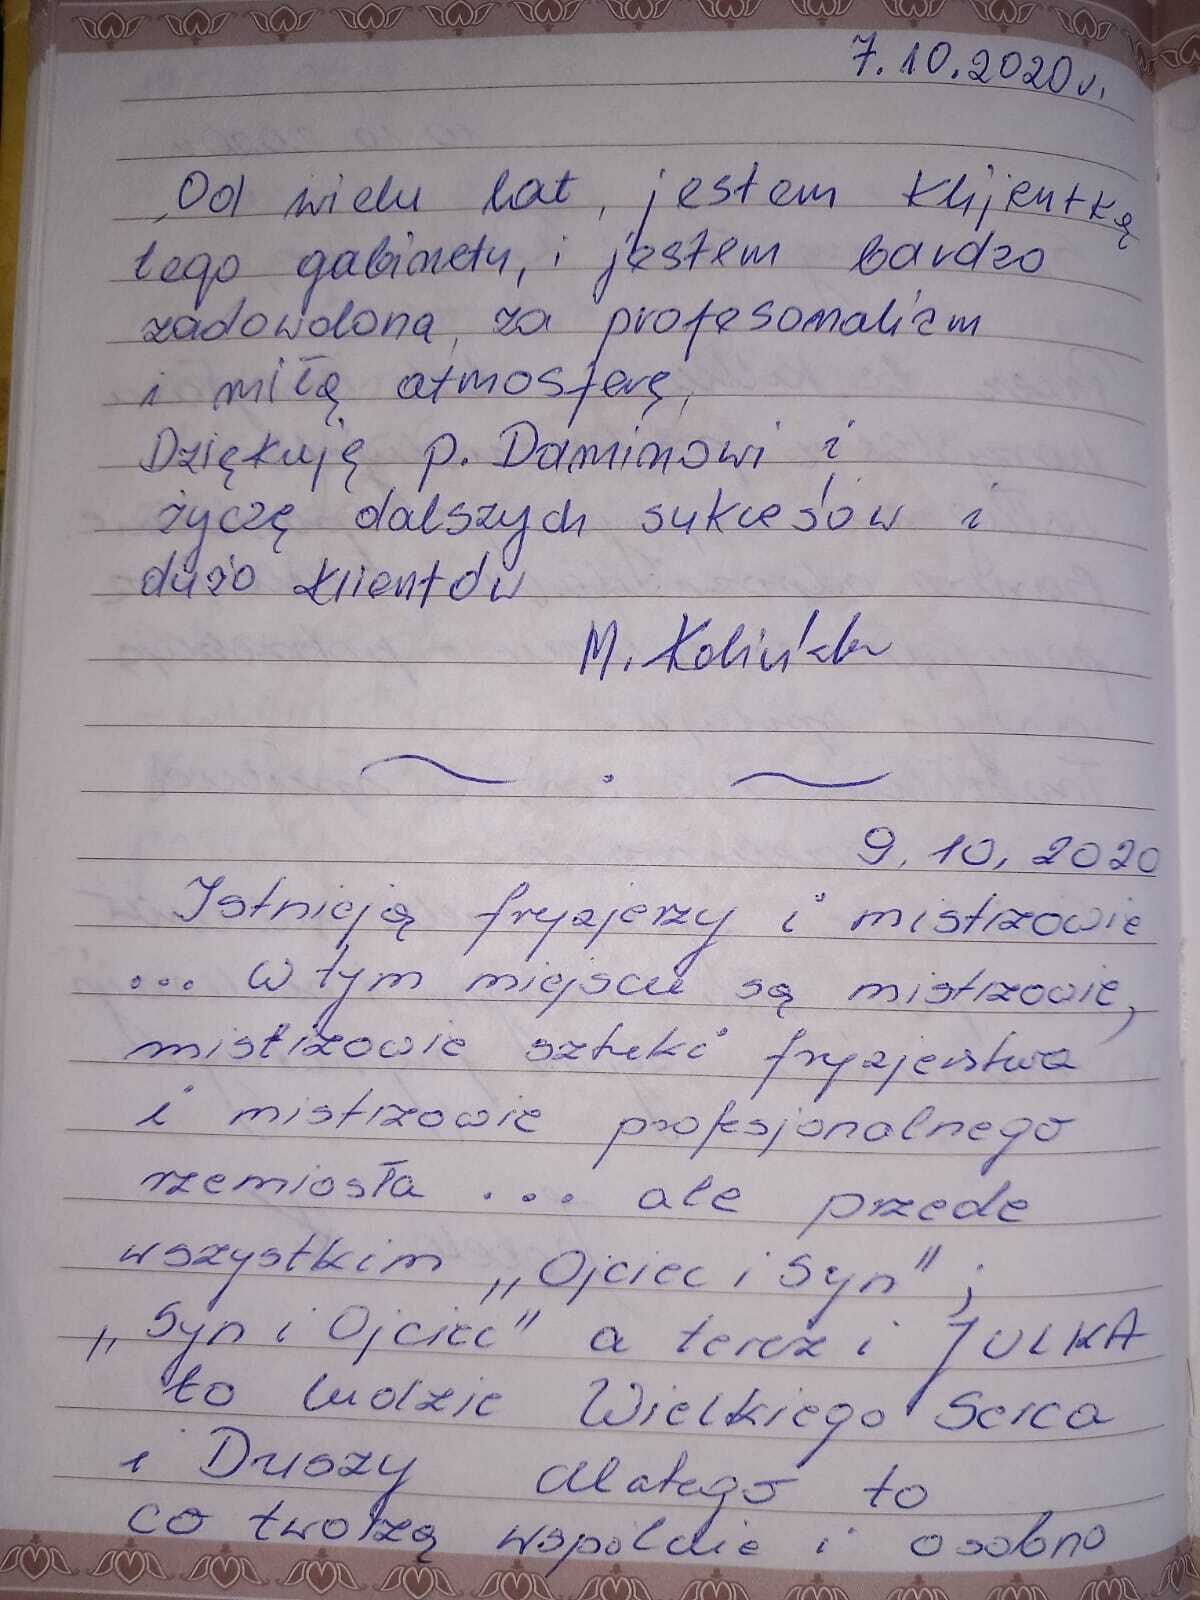 7.10.2020r.
Od wielu lat, jestem klijentką
tego gabinetu, i jestem bardzo
zadowoloną, za profesomalizm
i miłą atmosferę,
Dziękuję p. Daminowi i
życzę dalszych sukcesów i
dużo klientów
M.
9.10.2020
Istnieją fryzjerzy i mistrzowie
... w tym miejscu są mistrzowie,
mistrzowie sztuki fryzjerstwa
i mistrzowie profesjonalnego
rzemiosła ... ale przede
wszystkim „Ojciec i Syn";
„Syn i Ojciec" a teraz i JULKA
to ludzie Wielkiego Serca
i Duszy dlatego to
co tworzą wspólnie i osobno